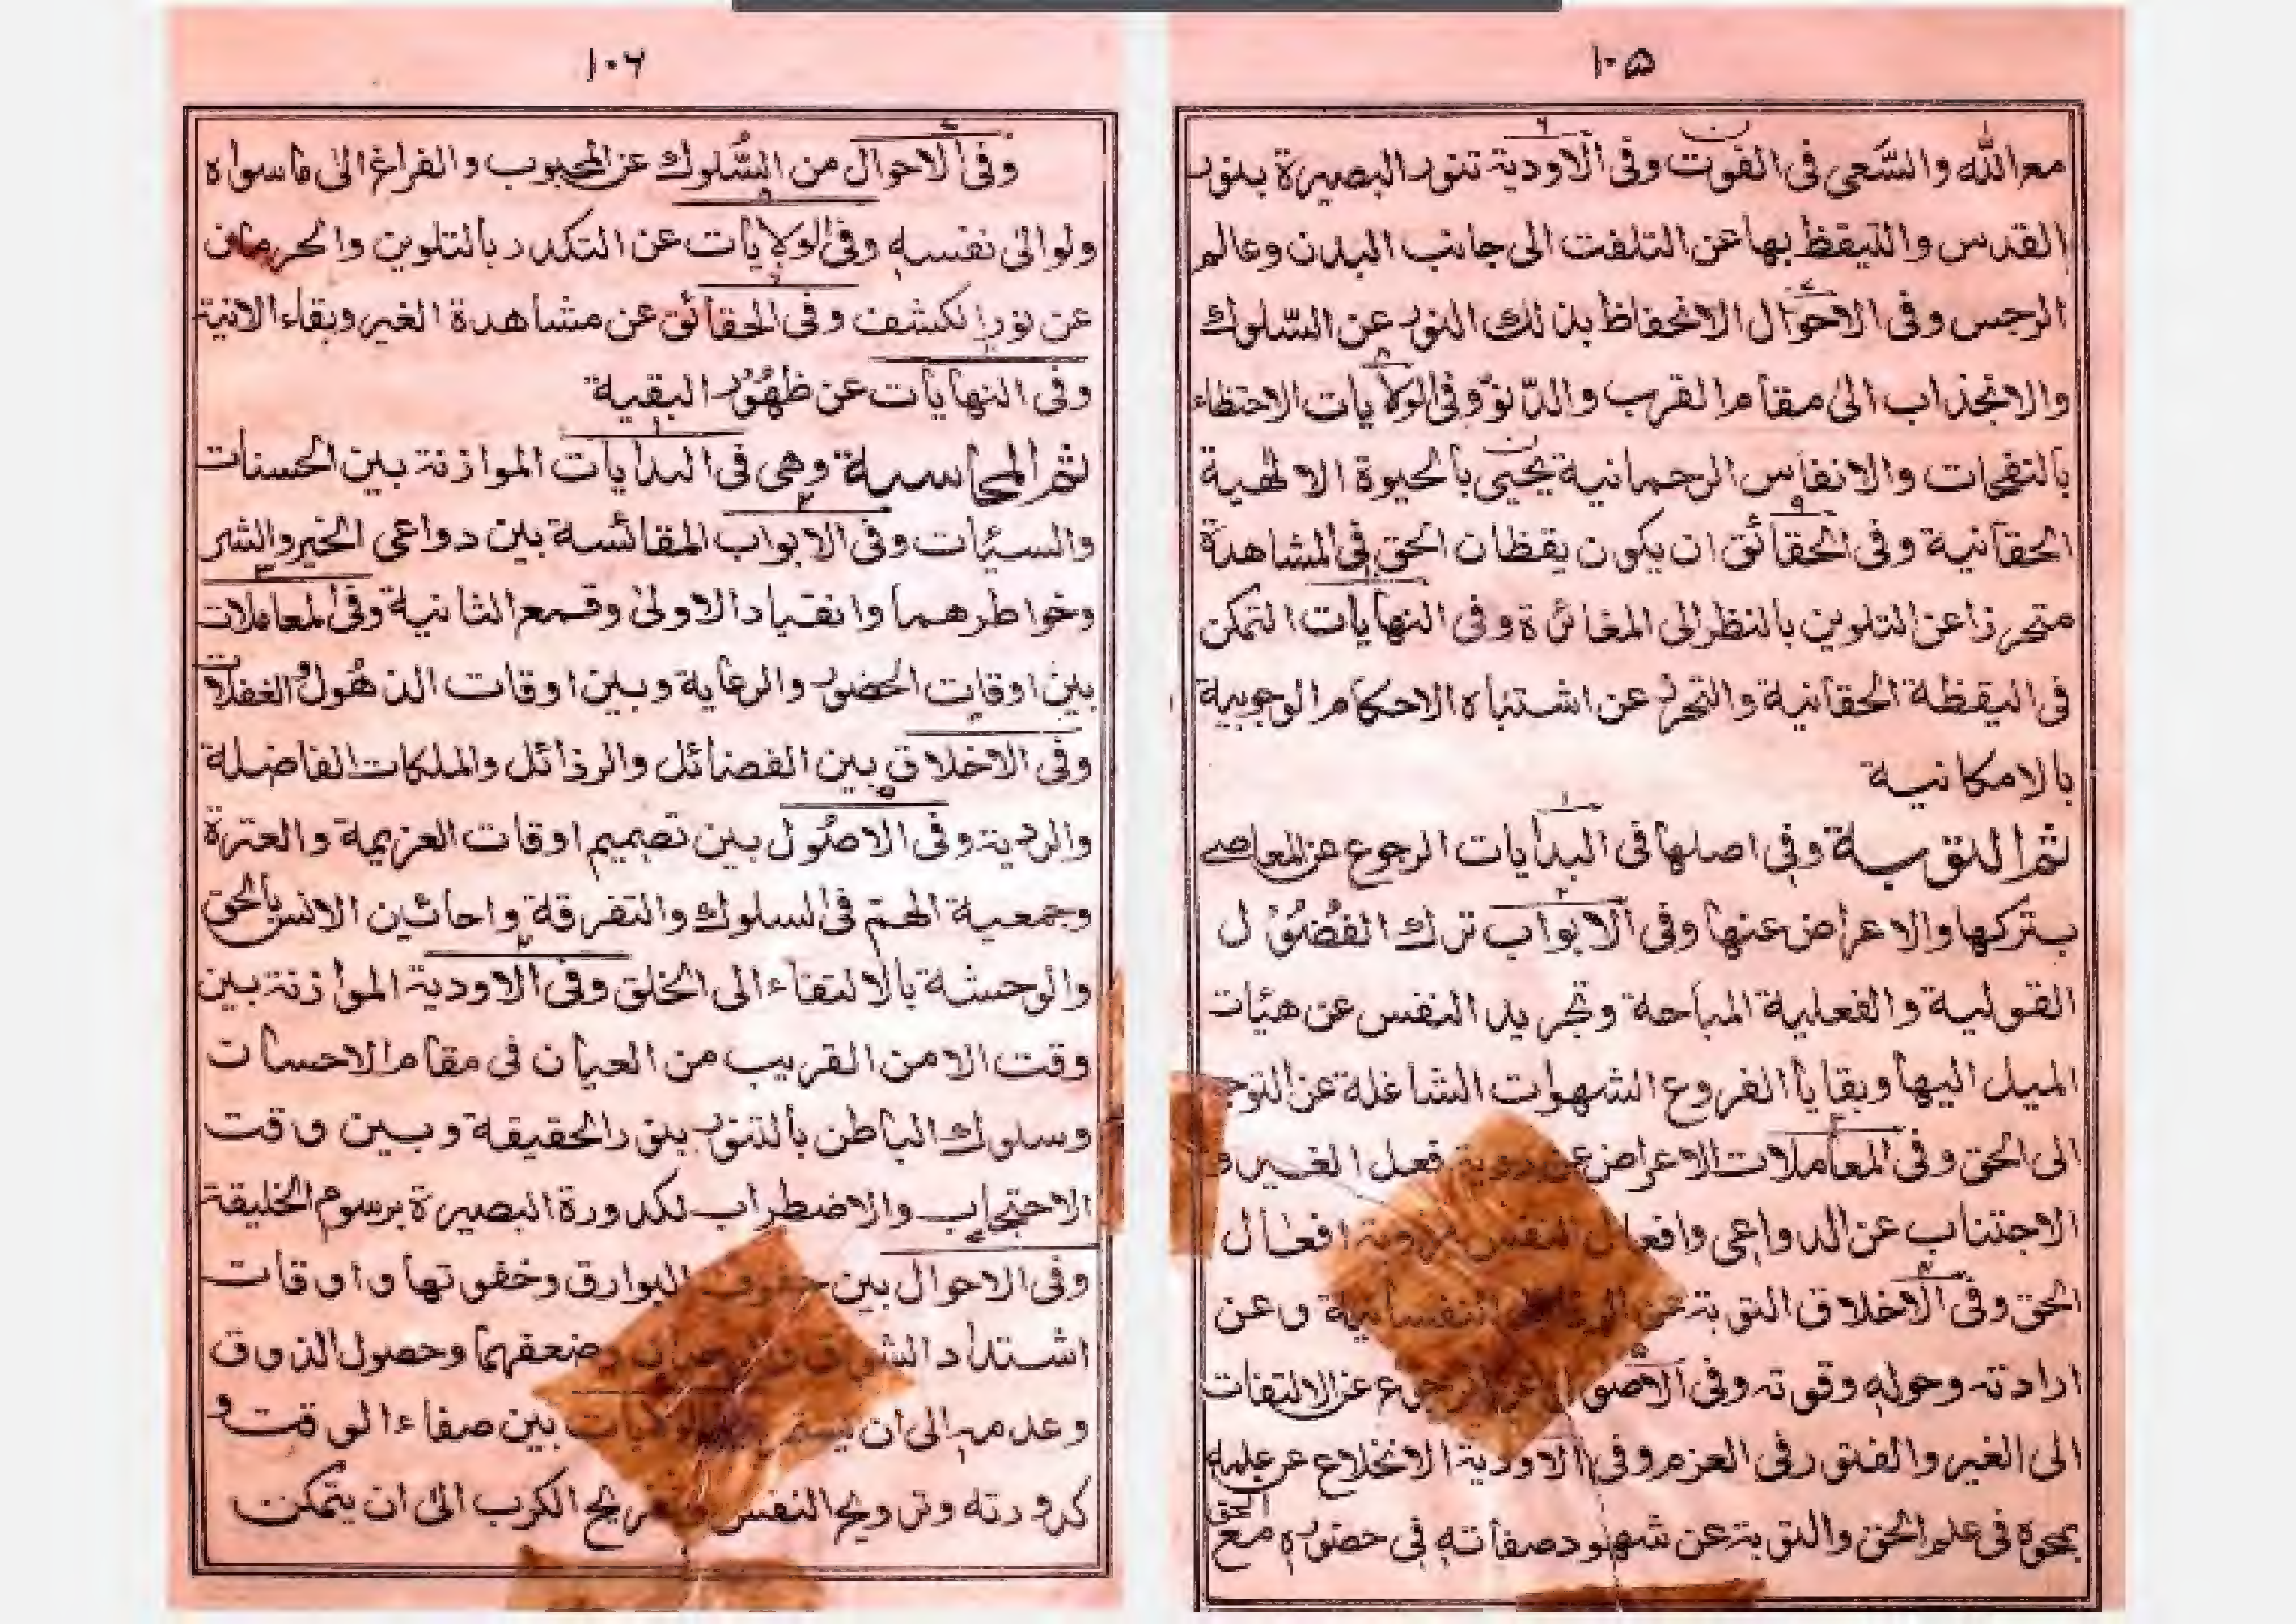 ١٠٥
مع الله والسَّعى فى القوت وفى الاودية تنور البصيرة بنور
القدس والتيقظ بها عن التلفت الى جانب البدن وعالم
الرجس وفى الاحوال الانحفاظ بذلك النور عن السّلوك
والانجذاب الى مقام القرب والدّنوّ وفى الولايات الاحتظاء
بالنفحات والانفاس الرحمانية يحيى بالحيوة الالهية
الحقانية وفى الحقائق ان يكون يقظان الحق فى المشاهدة
متحرزا عن التلوين بالنظر الى المغائرة وفى النهايات التمكن
فى اليقظة الحقانية والتحرز عن اشتباه الاحكام الوجوبية
بالامكانية
ثم التوبة وفى اصلها فى البدايات الرجوع عن المعاصى
بتركها والاعراض عنها وفى الابواب ترك الفضول
القولية والفعلية المباحة وتجريد النفس عن هيئات
الميل اليها وبقايا الفروع الشهوات الشاغلة عن التوجه
الى الحق وفى المعاملات الاعراض عن روية فعل الغير و
الاجتناب عن الدواعى وافعال النفس بروية افعال
الحق وفى الاخلاق التوبة عن النفسانية وعن
ارادته وحوله وقوته وفى الاصول الرجوع عن الالتفات
الى الغير والفتور فى العزم وفى الاودية الانخلاع عن علمه
بمحوه فى علم الحق والتوبة عن شهود صفاته فى حضوره مع
الحق
١٠٦
وفى الاحوال من السُّلوك عن المحبوب والفراغ الى ماسواه
ولو الى نفسه وفى الولايات عن التكدر بالتلوين والحرمان
عن نور الكشف وفى الحقائق عن مشاهدة الغير وبقاء الانية
وفى النهايات عن ظهُور البقية
ثم المحاسبة وهى فى البدايات الموازنة بين الحسنات
والسيئات وفى الابواب المقائسة بين دواعى الخير والشر
وخواطرهما وانقياد الاولى وقمع الثانية وفى المعاملات
بين اوقات الحضور والرعاية وبين اوقات الذهُول والغفلات
وفى الاخلاق بين الفضائل والرذائل والملكات الفاضلة
والردية وفى الاصُول بين تصميم اوقات العزيمة والعترة
وجمعية الهمّ فى السلوك والتفرقة واحائين الانس بالحق
والوحشة بالالتفاء الى الخلق وفى الاودية الموازنة بين
وقت الامن القريب من العيان فى مقام الاحسان
وسلوك الباطن بالتنور بنور الحقيقة وبين وقت
الاحتجاب والاضطراب لكدورة البصيرة برسوم الخليقة
وفى الاحوال بين البوارق وخفوتها واوقات
اشتداد الشوق وضعفهما وحصول الذوق
وعدمه الى ان بين صفاء الوقت و
كدورته وترويح النفس وتفريج الكرب الى ان يتمكن